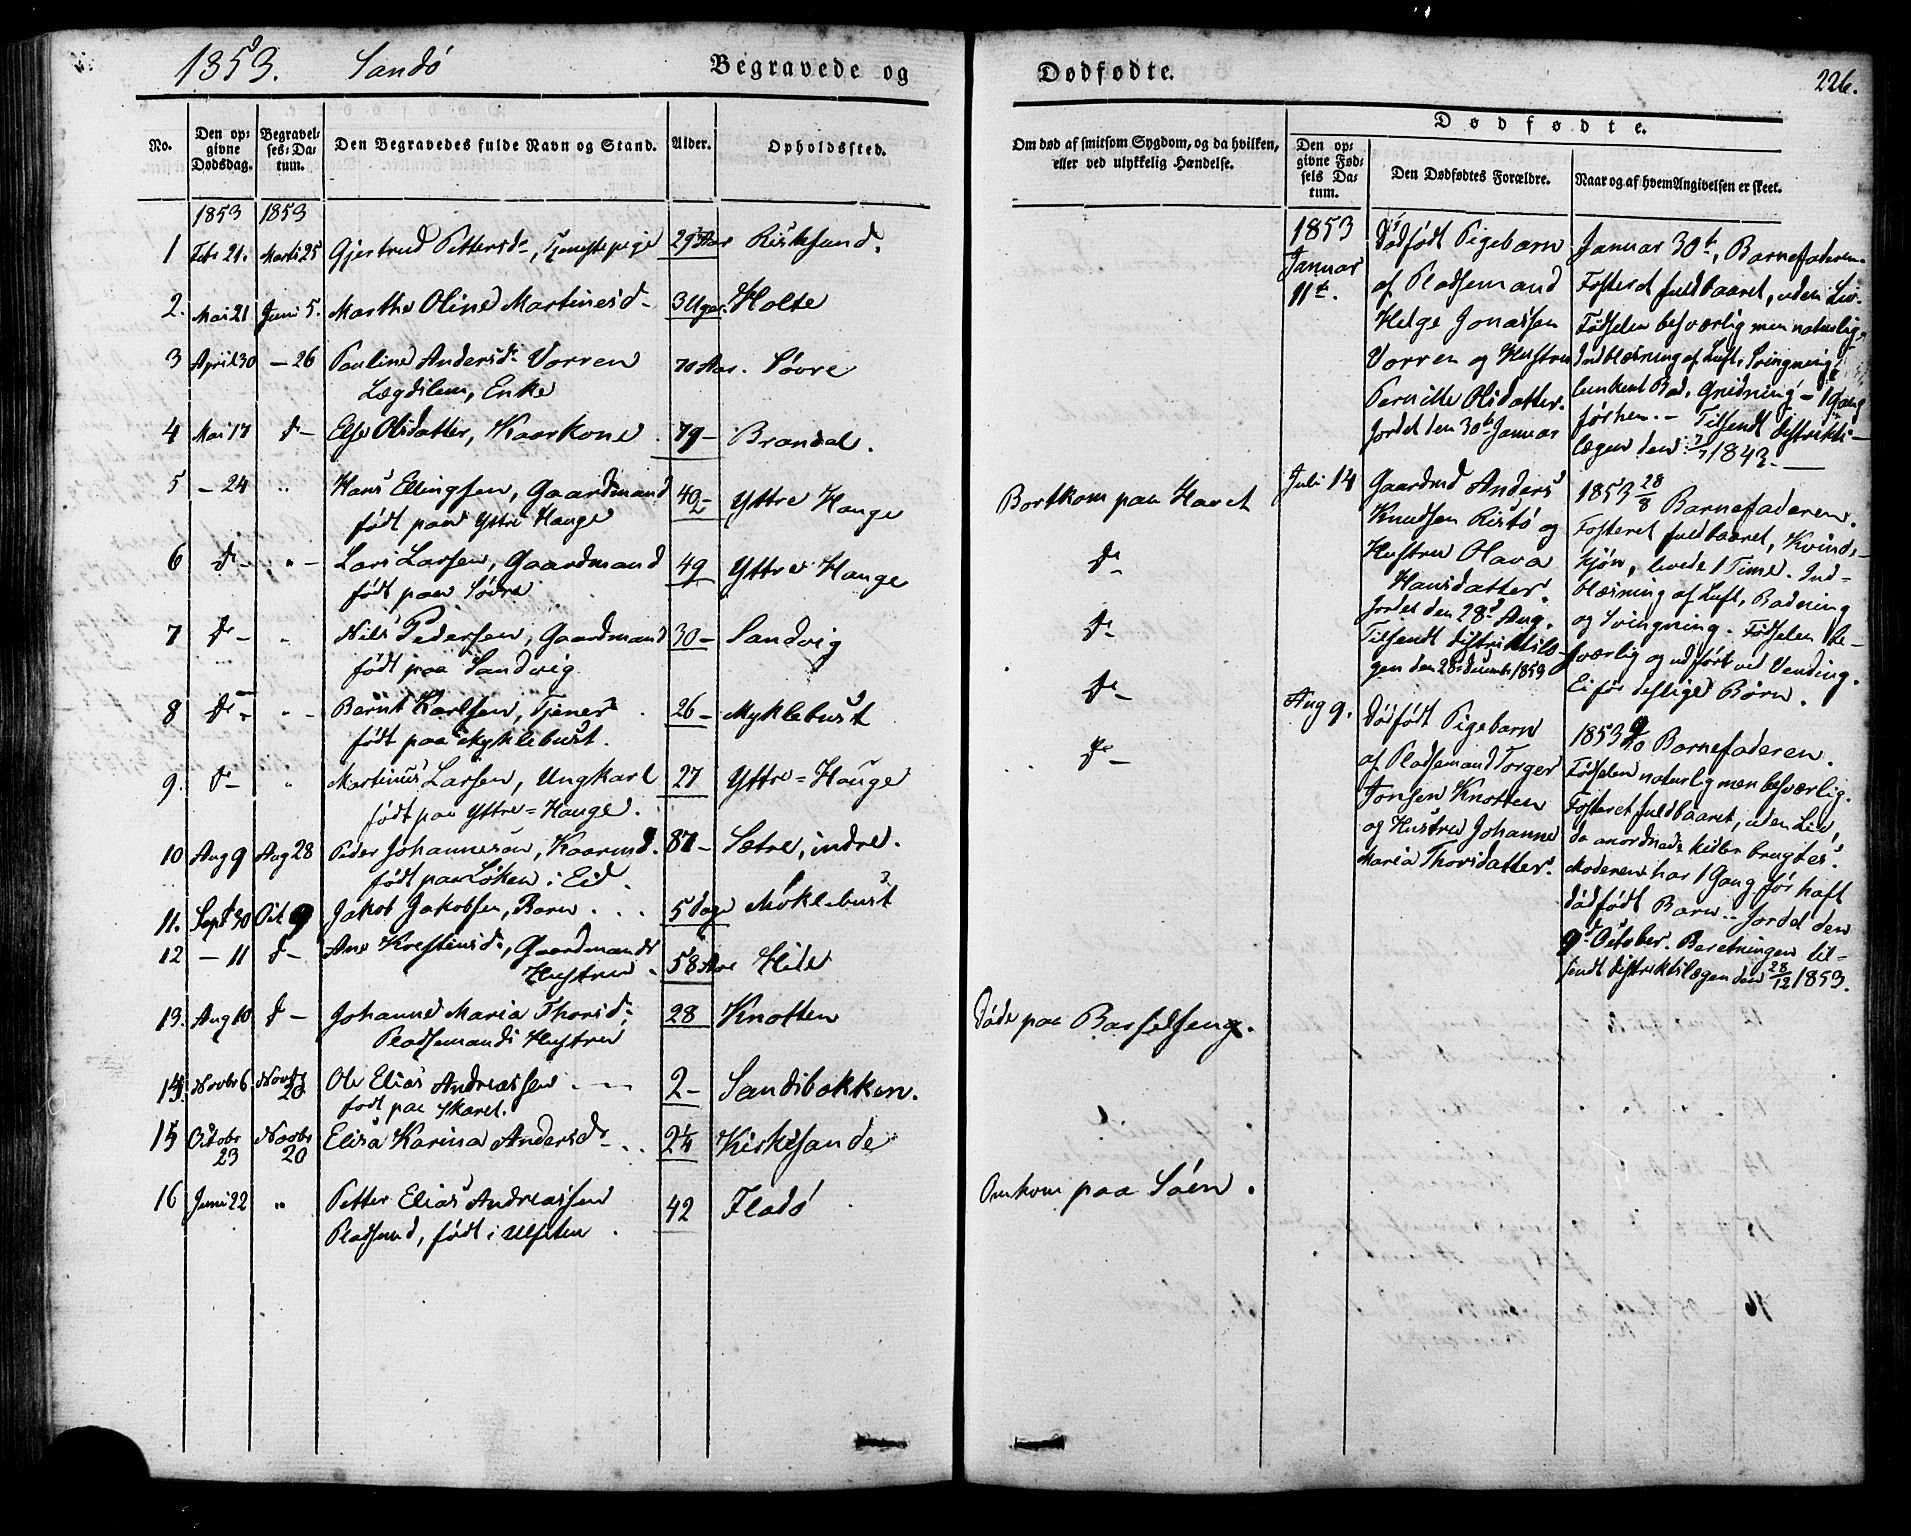 1853. Sandö Begravede og Dødfødte. 226.
No. Den opgivne Dødsdag. Begravelses-Datum. Den Begravedes fulde Navn og Stand. Alder. Opholdssted.
1853 1853
1 Febr 21. Marts 25 Gjertrud Pettersd-, Tjenestepige 29 Aar Risksund.
2. Mai 21 Juni 5. Marthe Oline Martinesd- 3 Uger. Holte
3 April 30 - 26 Pauline Andersd- Vorren 70 Aar. Sövre
Lægdslem, Enke
4 Mai 17 d- Else Olsdatter, Kaarkone 79- Brandal.
5 - 24 " Hans Ellingsen, Gaardmand 40- Yttre Hauge
født paa Yttre Hauge
6 d- "- Lars Larsen, Gaardmand 49 Yttre Hauge
født paa Sövre
7 d- " Nils Pedersen, Gaardmand 30- Sandvig
født paa Sandvig
8 d- "- Bernt Karlsen, Tjener 26- Myklebust
født paa Myklebust.
9. d- " Martinus Larsen, Ungkarl 27 Yttre=Hauge
født paa Yttre=Hauge.
10 Aug 9 Aug 28 Peder Johannesen, Kaarmd. 87- Sætre, indre.
født paa Løken i Eid.
11. Sept 30 Oct 9 Jakob Jakobsen, Barn . . . 5 dage Möklebust
12 - 11 d- Ane Krestensd-, Gaardmands
Hustru. 58 Aar Hide
13. Aug 10 d- Johanne Maria Thorsd- 28 Knotten
Pladsemands Hustru
14. Novbr 6 Novbr 20 Ole Elias Andreassen 2- Sandsbakken.
født paa Skaret.
15 Octobr 23 Novbr 20 Elisa Karina Andersd- . . 2¼ Kirkesande
16 Juni 22 " Petter Elias Andreassen 42 Fladö
Pladsmd, født i Ulfsten.
Om død af smitsom Sygdom, og da hvilken,
eller ved ulykkelig Hændelse.
Bortkom paa Havet
d-
d-
d-
d-
Døde paa Barselseng.
Omkom paa Söen.
Dødfødte.
Den opgivne Fødsels Datum. Den Dødfødtes Forældre. Naar og af hvem Angivelsen er skeet.
1853
Januar
11te.
Dødfødt Pigebarn
af Pladsemand
Helge Jonassen
Vorren og Hustru
Pernille Olsdatter.
Jordet den 30te Januar
Januar 30te, Barnefaderen.
Fosteret fuldbaaret, uden Liv.
Fødselen besværlig men naturlig,
Indblæsning af Luft, Svingning,
lunkent Bad, Gnidning - 1 Gang
førhen. - Tilsendt distrikts-
lægen den 1843.
Juli 14
Gaardmd Anders
Knudsen Ristö og
Hustru Olava
Hansdatter.
Jordet den 28d Aug.
Tilsendt distriktslæ-
gen den 28 decemb. 1853
1853 28/8 Barnefaderen.
Fosteret fuldbaaret, Kvinde-
kjøn, levede 1 Time. Ind-
blæsning af Luft, Badning
og Svingning. Fødselen be-
sværlig og udført ved Vending.
Ei før deslige Børn.
Aug 9.
Dødfødt Pigebarn
af Pladsemand Torger
Jonsen Knotten
og Hustru Johanne
Maria Thorsdatter.
1853 9/10 Barnefaderen.
Fødselen naturlig men besværlig.
Fosteret fuldbaaret, uden Liv,
de anordnede Midler brugtes.
Moderen har 1 Gang før haft
dødfødt Barn. Jordet den
9d October. Beretningen til-
sendt distriktslægen den 28/12 1853.